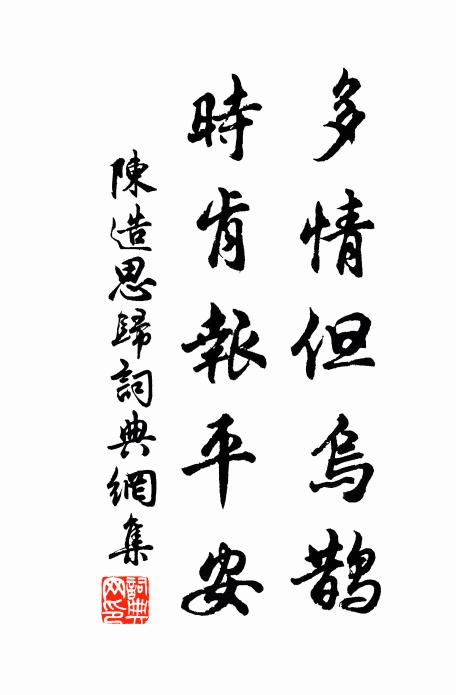 多情但烏鵲
時肯報平安
陳造思歸詞典網集
詞典網印